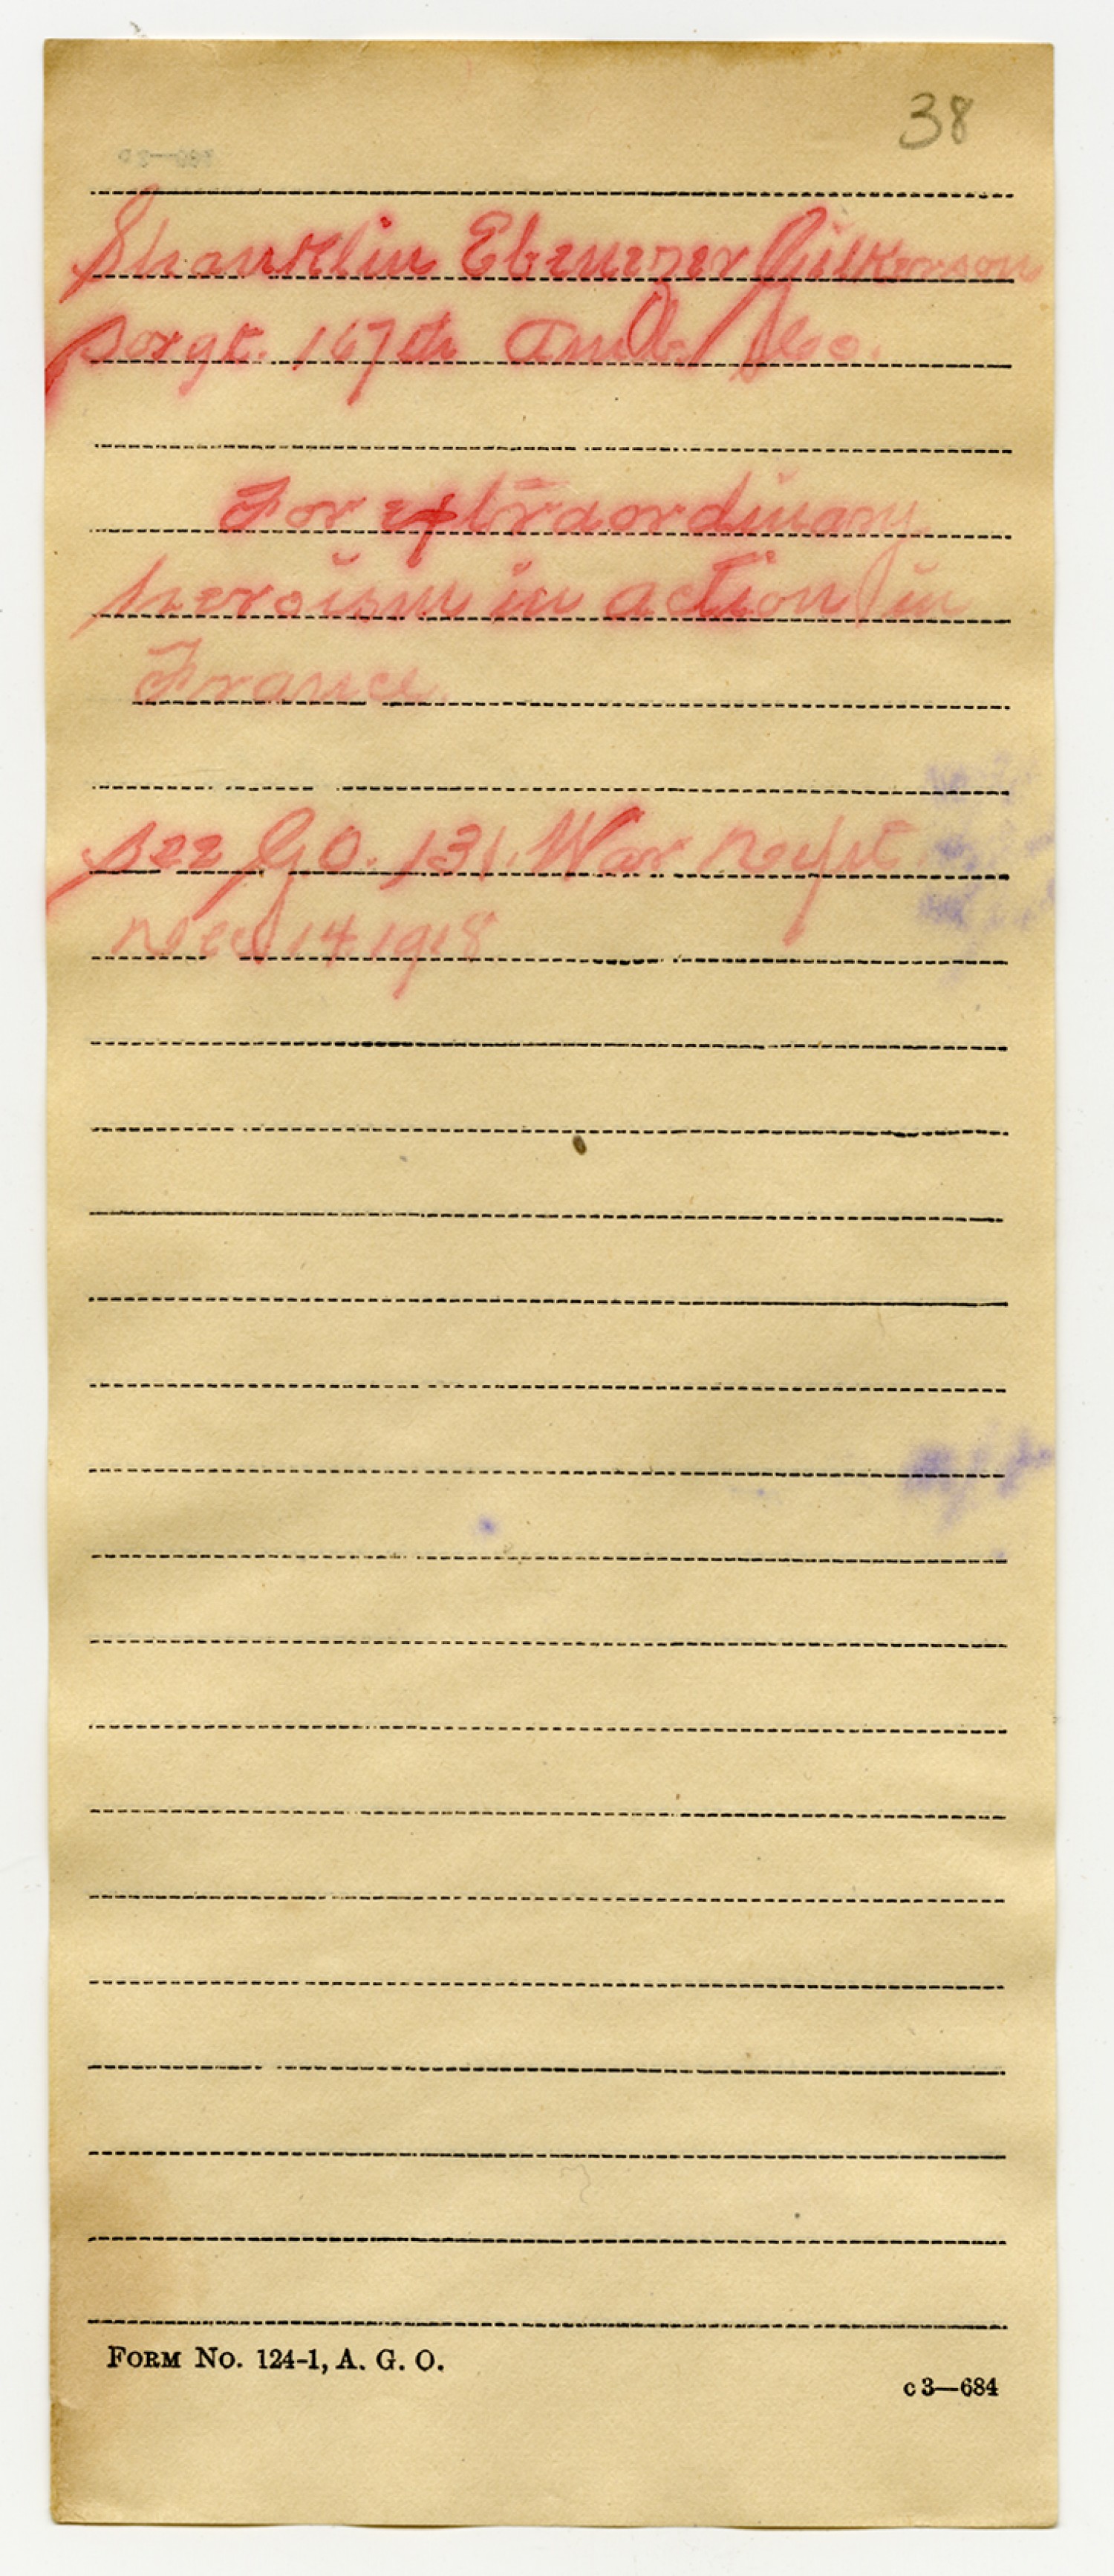 38
Shanklin Ebenezer Gilkerson
Sergt. 167th Amb. Co.
For extraordinary
heroism in action in
France
See G.O. 131. War Dept
Dec 14 1918
FORM NO. 124-1, A. G. O.
c 3—684